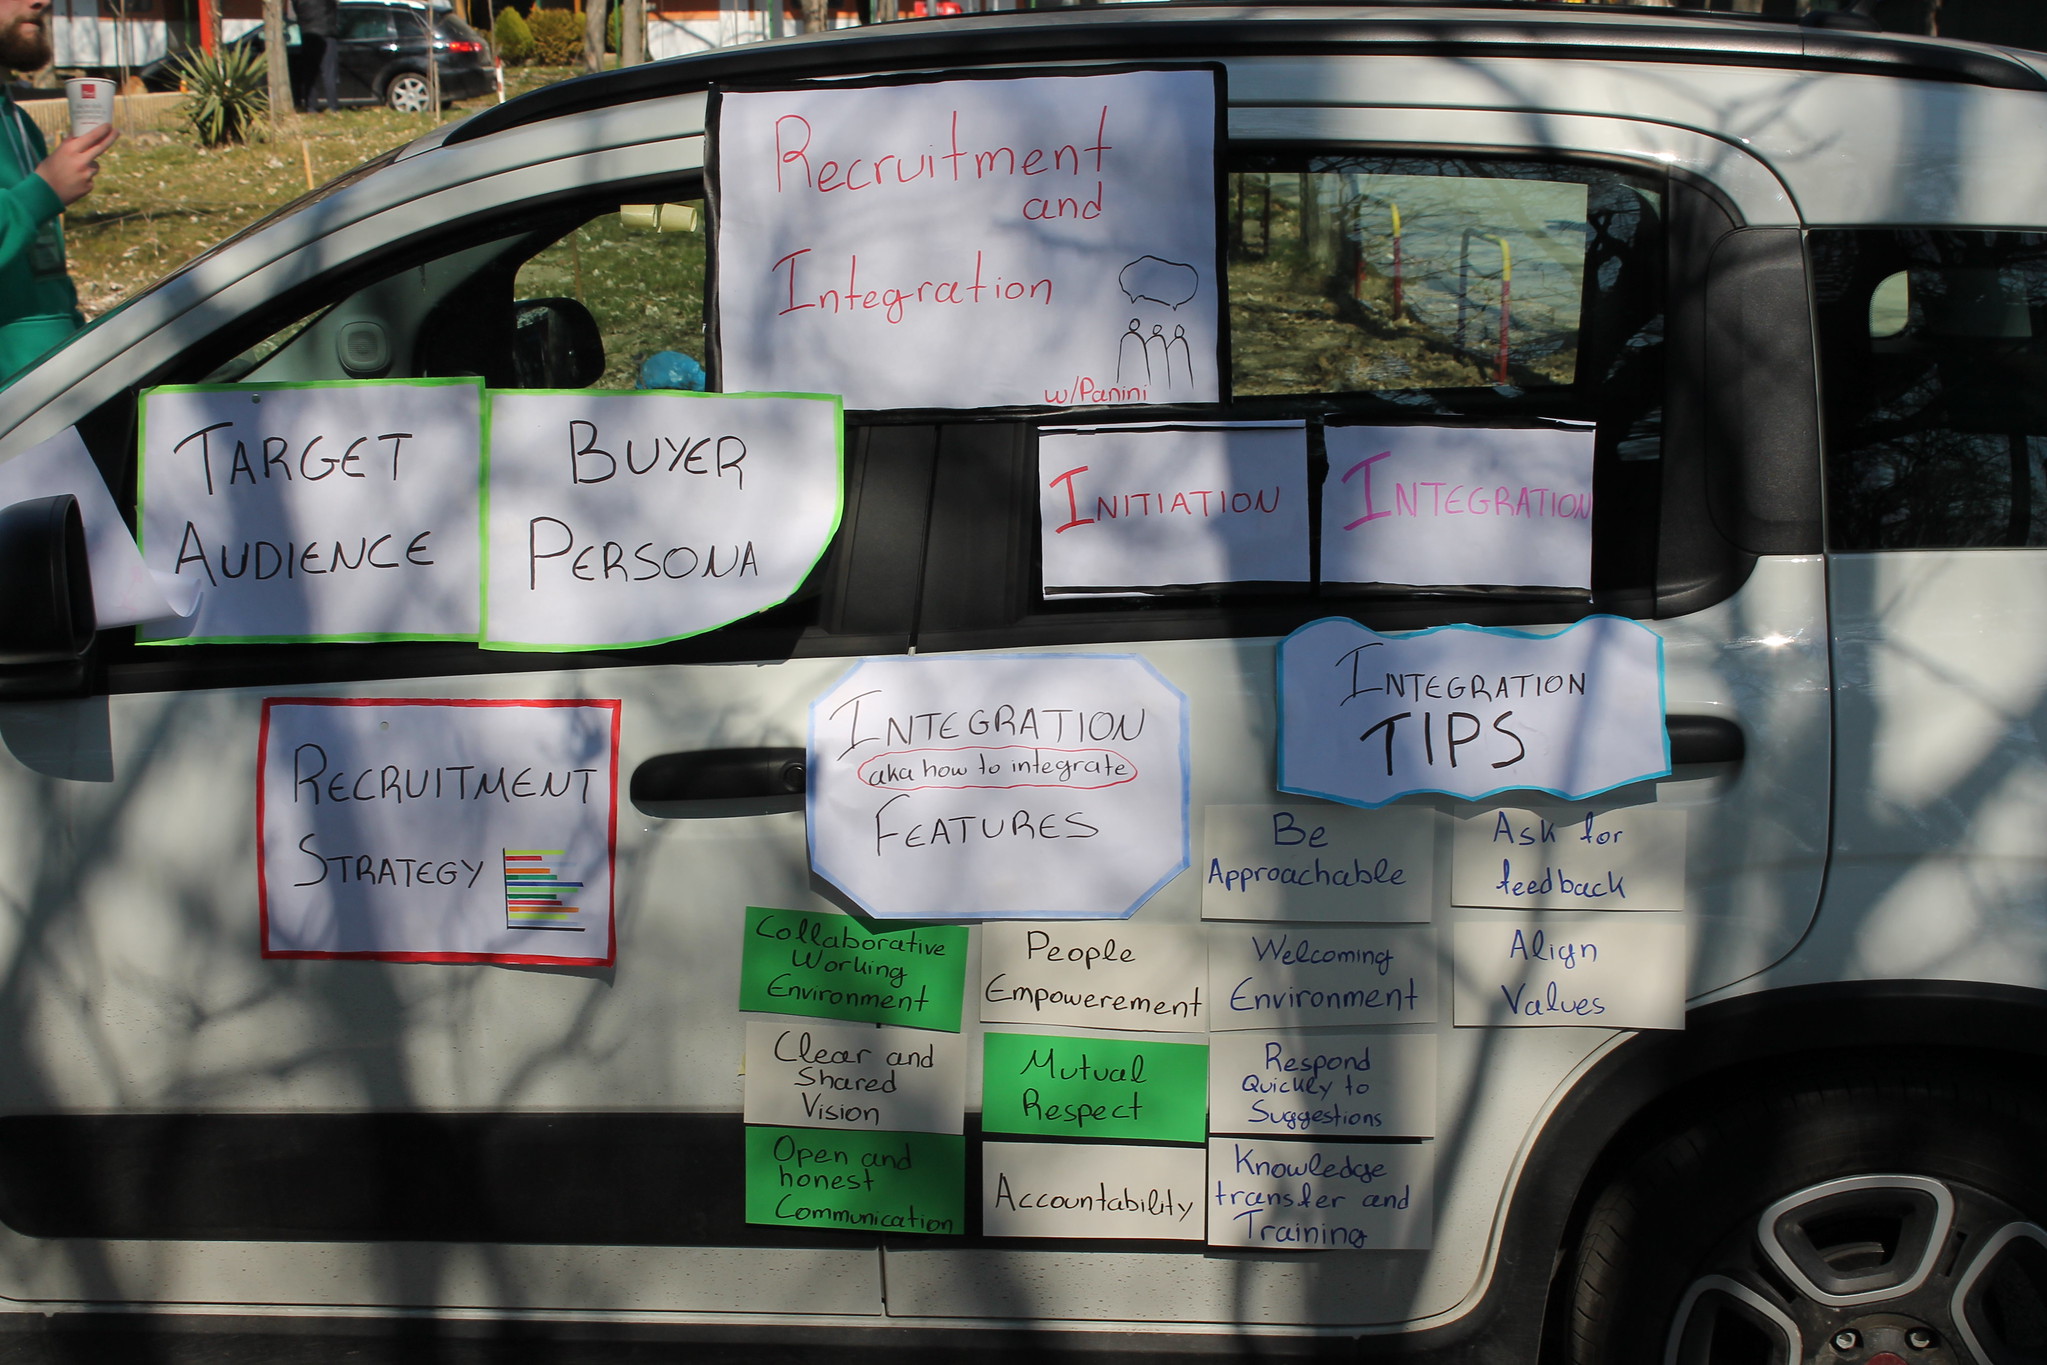 Recruitment
and
Integration
w/Panini
TARGET
AUDIENCE
BUYER
PERSONA
INITIATION
INTEGRATION
RECRUITMENT
STRATEGY
INTEGRATION
aka how to integrate
FEATURES
INTEGRATION
TIPS
Collaborative
Working
Environment
People
Empowerement
Clear and
Shared
Vision
Mutual
Respect
Open and
honest
Communication
Accountability
Be
Approachable
Ask for
feedback
Welcoming
Environment
Align
Values
Respond
Quickly to
Suggestions
Knowledge
transfer and
Training